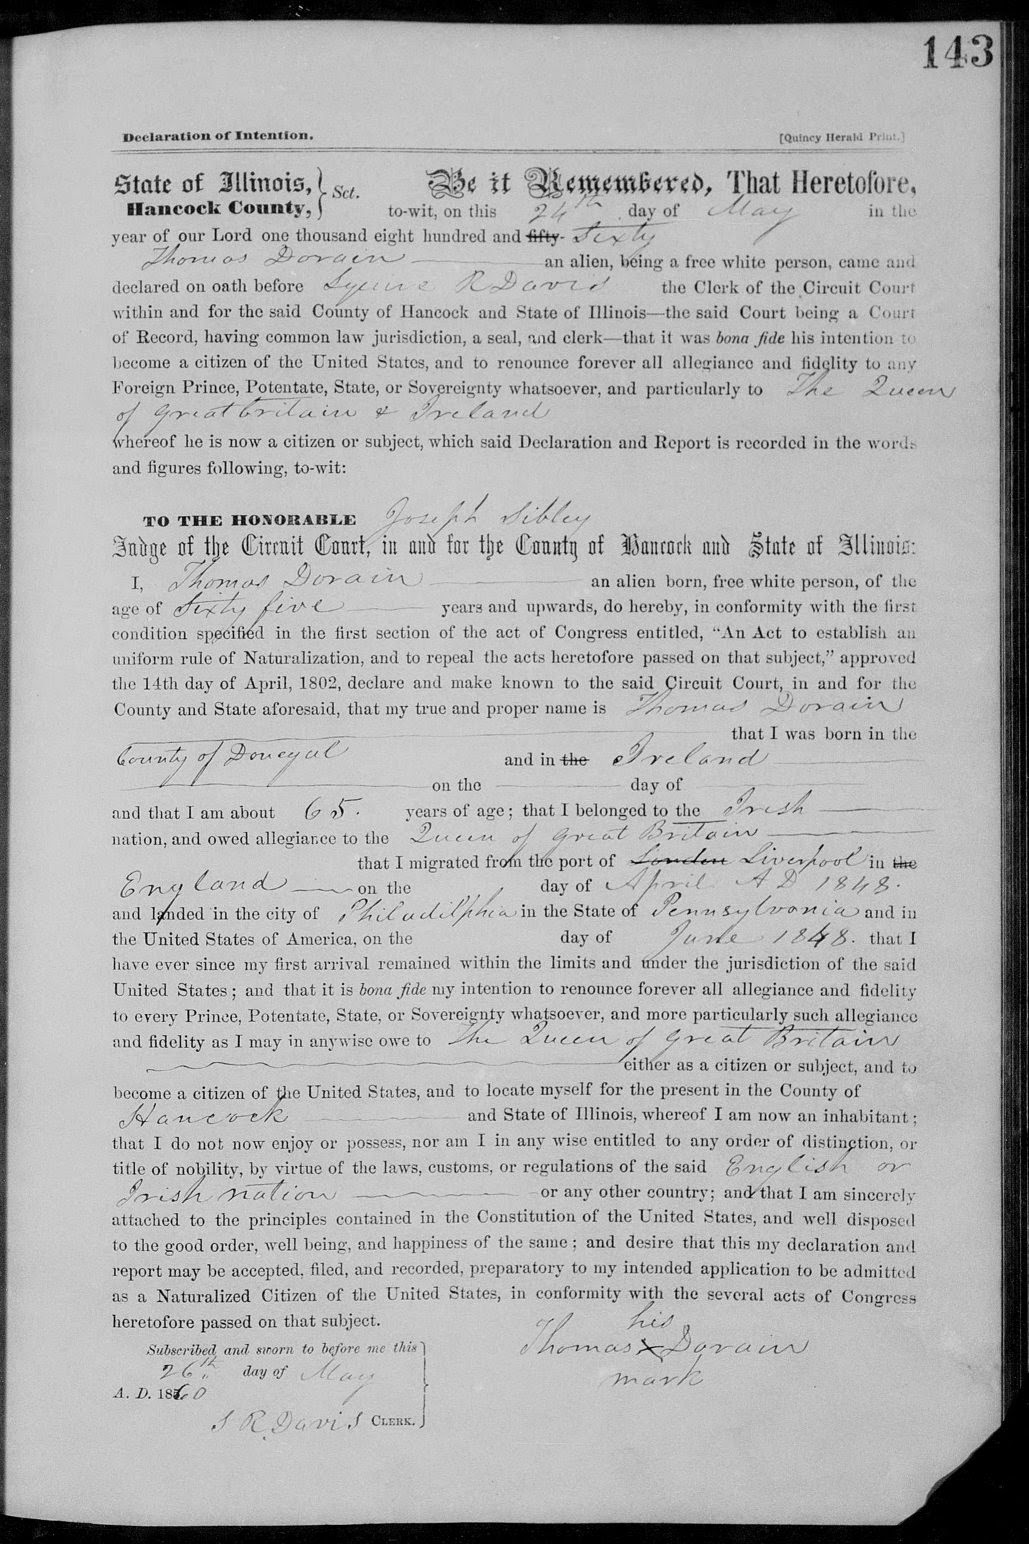 143
Declaration of Intention. [Quincy Herald Print.]
State of Illinois, } Sct. Be it Remembered, That Heretofore,
Hancock County, to-wit, on this 24th day of May in the
year of our Lord one thousand eight hundred and fifty Sixty
Thomas Dorain an alien, being a free white person, came and
declared on oath before Squire R Davis the Clerk of the Circuit Court
within and for the said County of Hancock and State of Illinois—the said Court being a Court
of Record, having common law jurisdiction, a seal, and clerk—that it was bona fide his intention to
become a citizen of the United States, and to renounce forever all allegiance and fidelity to any
Foreign Prince, Potentate, State, or Sovereignty whatsoever, and particularly to The Queen
of great britain & Ireland
whereof he is now a citizen or subject, which said Declaration and Report is recorded in the words
and figures following, to-wit:
TO THE HONORABLE Joseph Sibley
Judge of the Circuit Court, in and for the County of Hancock and State of Illinois:
I, Thomas Dorain an alien born, free white person, of the
age of Sixty five years and upwards, do hereby, in conformity with the first
condition specified in the first section of the act of Congress entitled, “An Act to establish an
uniform rule of Naturalization, and to repeal the acts heretofore passed on that subject,” approved
the 14th day of April, 1802, declare and make known to the said Circuit Court, in and for the
County and State aforesaid, that my true and proper name is Thomas Dorain
that I was born in the
County of Donegal and in the Ireland
on the day of
and that I am about 65. years of age; that I belonged to the Irish
nation, and owed allegiance to the Queen of great Britain
that I migrated from the port of London Liverpool in the
England on the day of April A D 1848.
and landed in the city of Philadilphia in the State of Pennsylvania and in
the United States of America, on the day of June 1848. that I
have ever since my first arrival remained within the limits and under the jurisdiction of the said
United States; and that it is bona fide my intention to renounce forever all allegiance and fidelity
to every Prince, Potentate, State, or Sovereignty whatsoever, and more particularly such allegiance
and fidelity as I may in anywise owe to the Queen of great Britain
either as a citizen or subject, and to
become a citizen of the United States, and to locate myself for the present in the County of
Hancock and State of Illinois, whereof I am now an inhabitant;
that I do not now enjoy or possess, nor am I in any wise entitled to any order of distinction, or
title of nobility, by virtue of the laws, customs, or regulations of the said English or
Irish nation or any other country; and that I am sincerely
attached to the principles contained in the Constitution of the United States, and well disposed
to the good order, well being, and happiness of the same; and desire that this my declaration and
report may be accepted, filed, and recorded, preparatory to my intended application to be admitted
as a Naturalized Citizen of the United States, in conformity with the several acts of Congress
heretofore passed on that subject.
his
Subscribed and sworn to before me this Thomas x Dorain
26th day of May mark
A. D. 1860
S R. Davis CLERK.